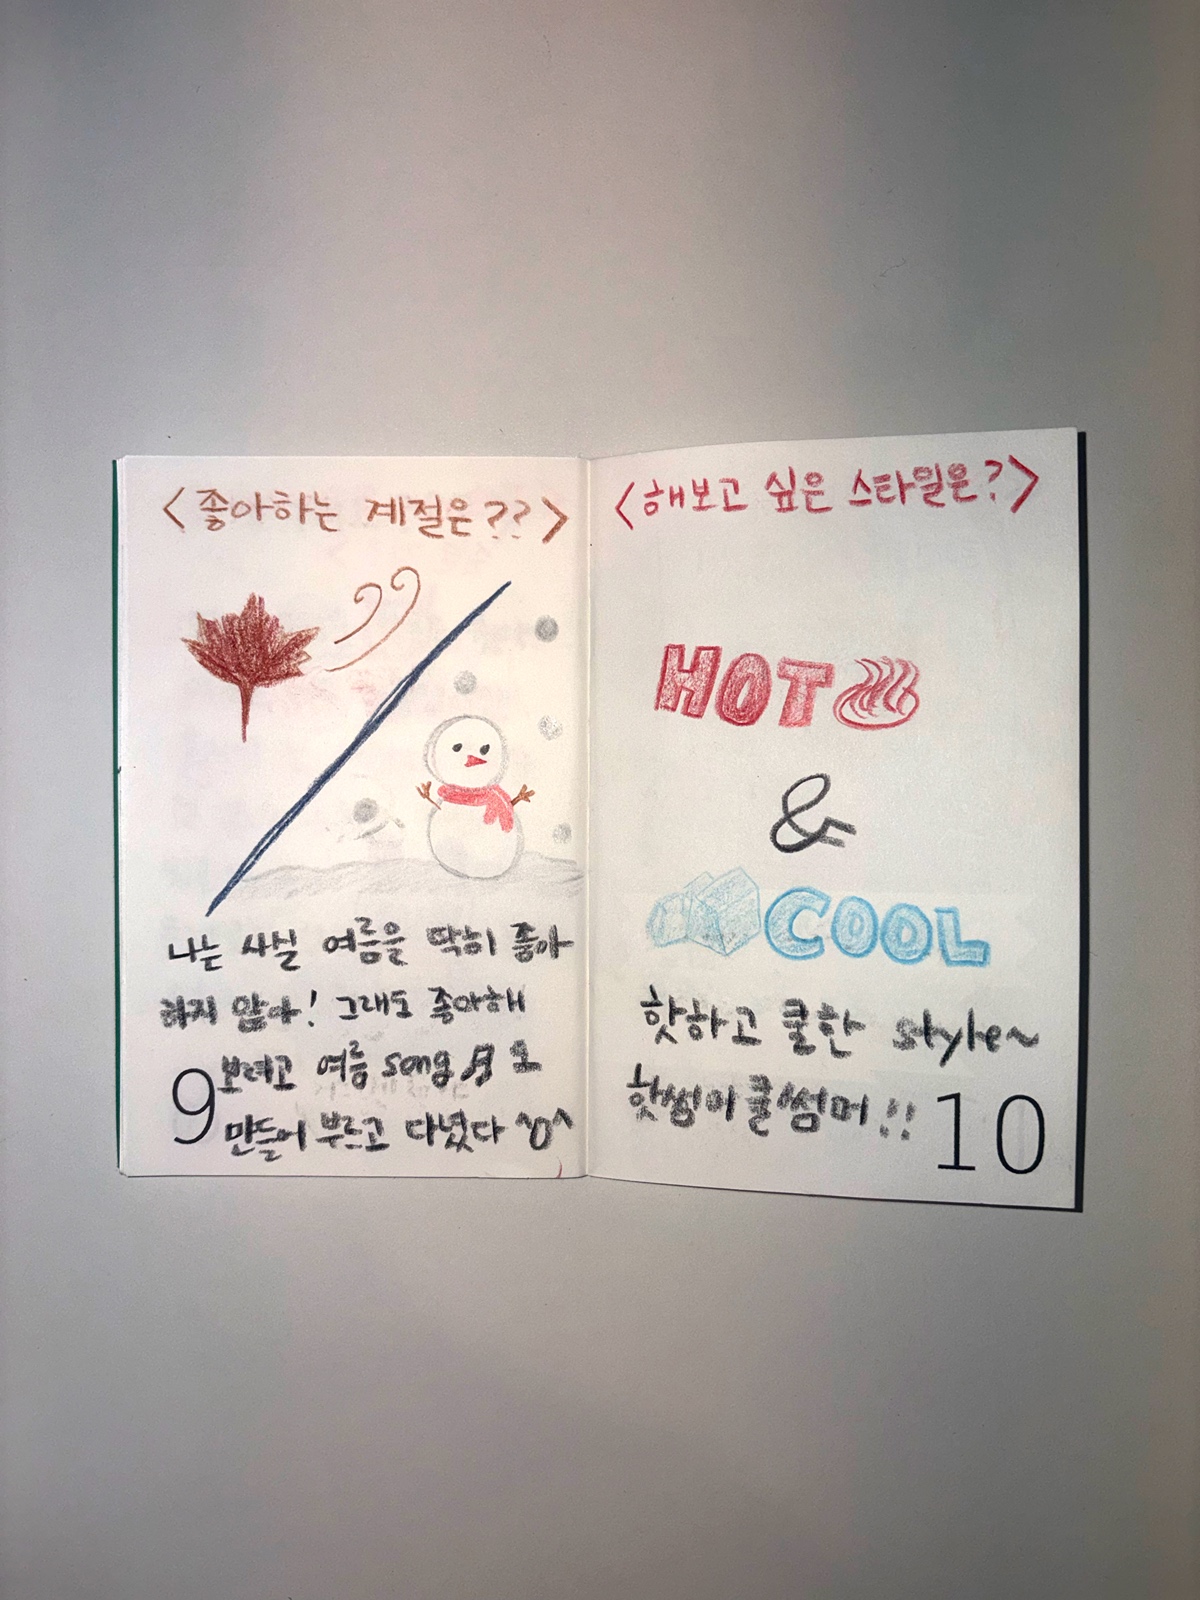 <좋아하는 계절은??>
나는 사실 여름을 딱히 좋아
하지 않아! 그래도 좋아해
보려고 여름 song도
만들어 부르고 다녔다 ^0^
9
<해보고 싶은 스타일은?>
HOT
&
COOL
핫하고 쿨한 style~
핫썸머 쿨썸머!!
10